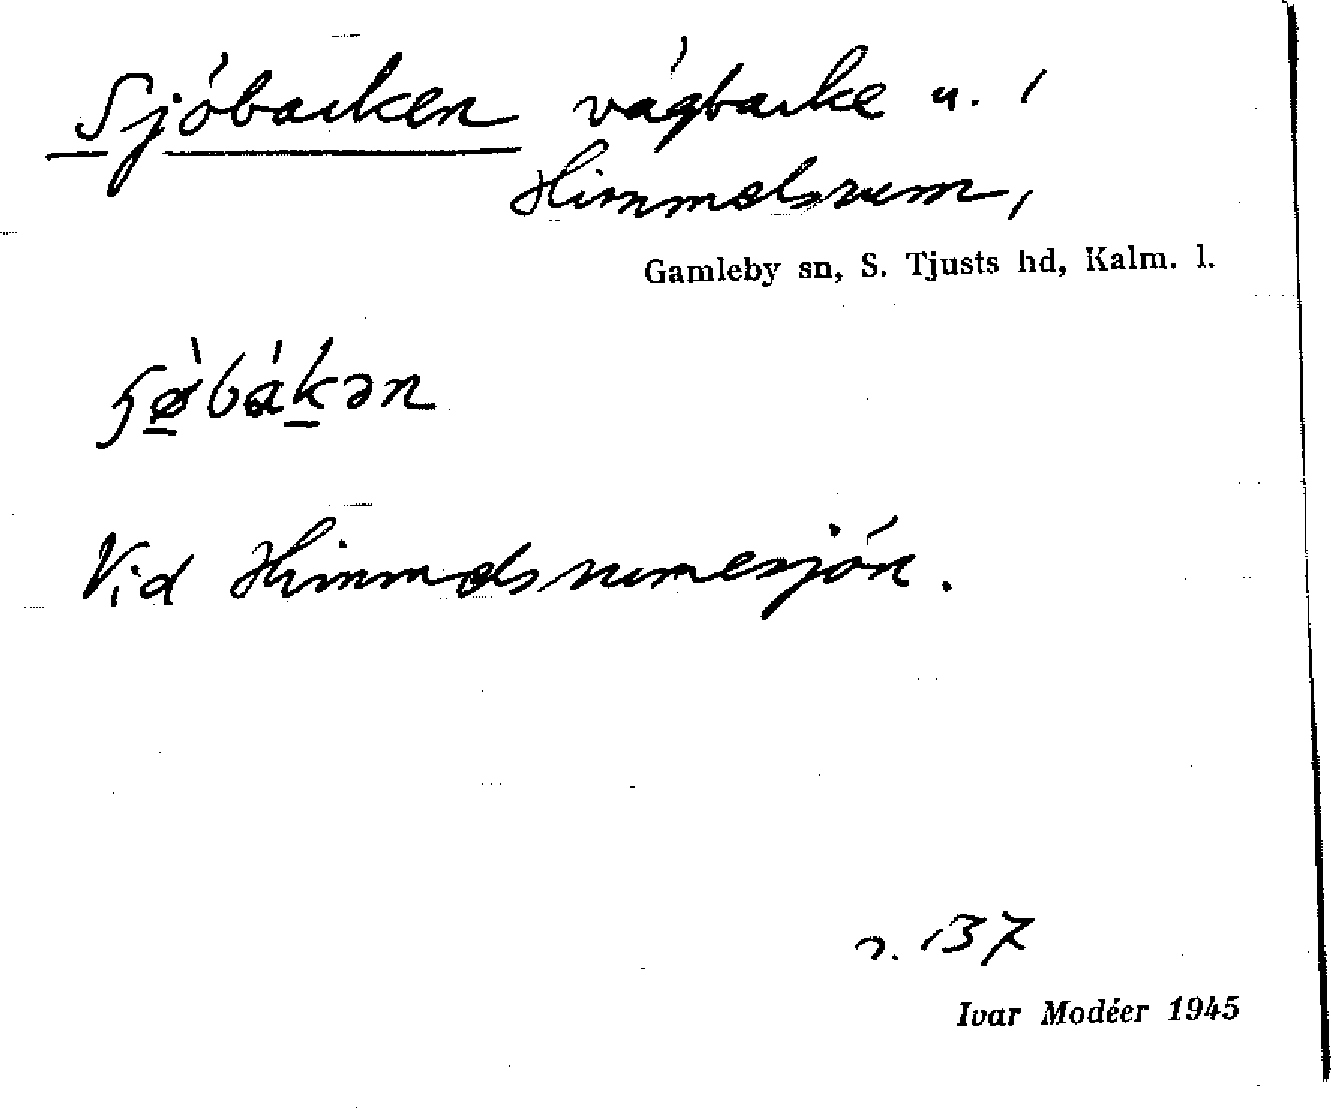 Sjöbacken vägbacke u. 1
Himmelsrum,
Gamleby sn, S. Tjusts hd, Kalm. l.
Vid Himmelsrumesjön.
s. 137
Ivar Modéer 1945